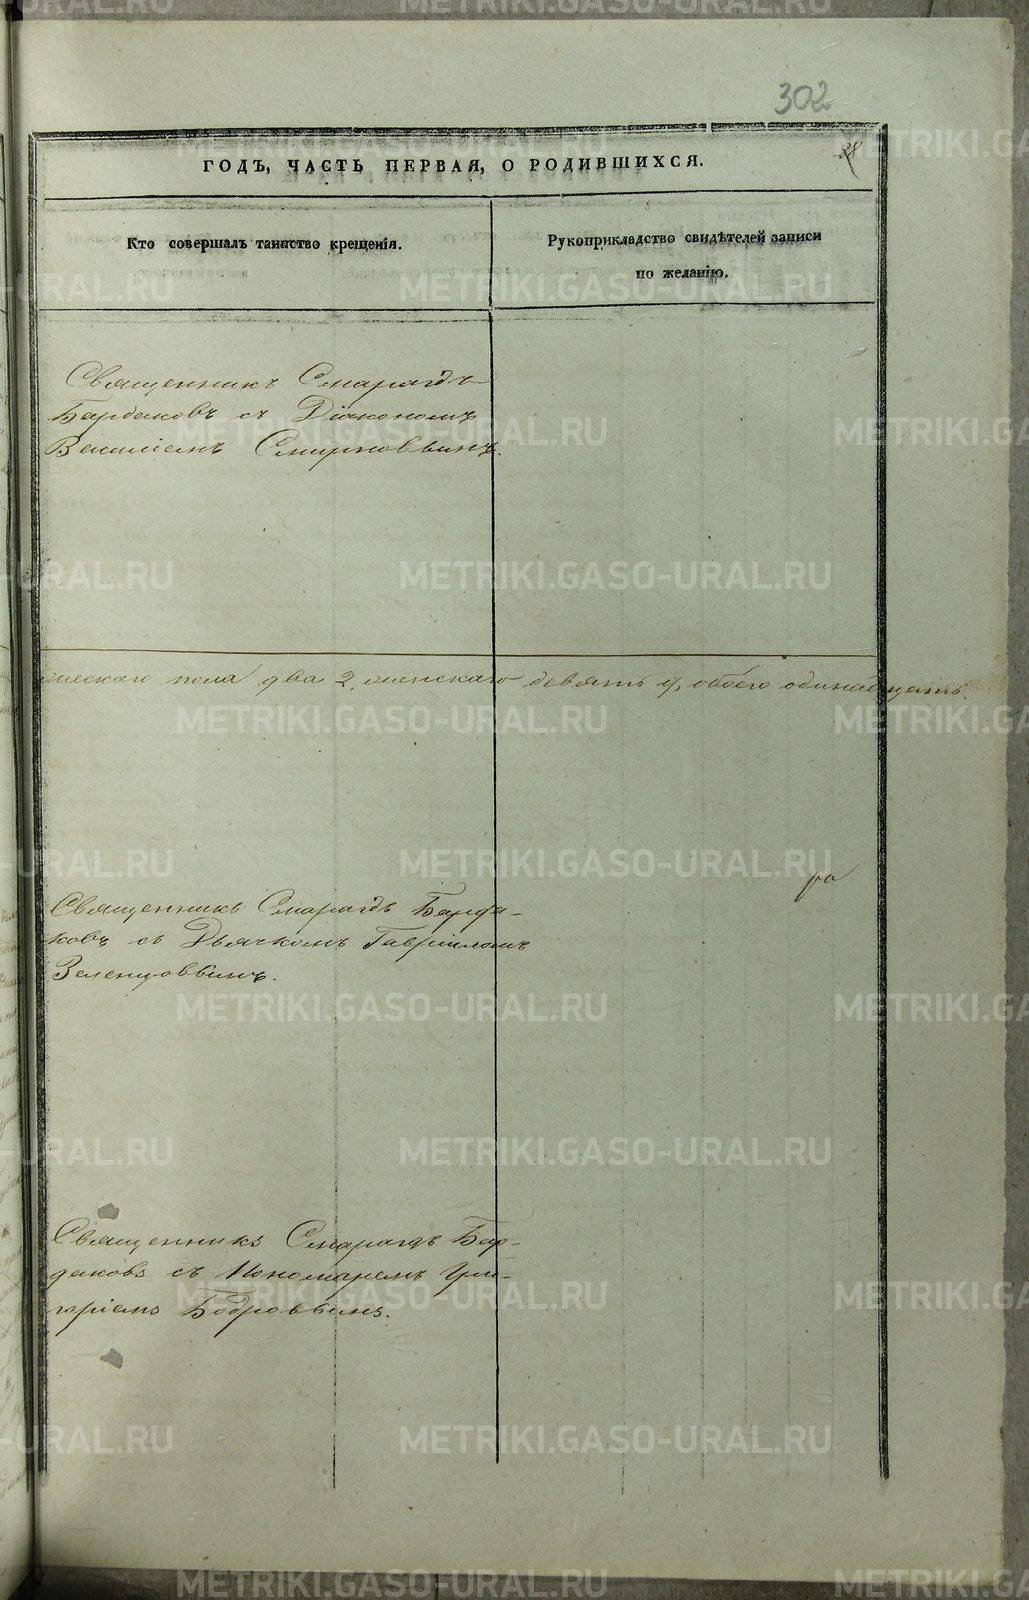 302
38
ГОДЪ, ЧАСТЬ ПЕРВАЯ, О РОДИВШИХСЯ.
Кто совершалъ таинство крещенія.
Рукоприкладство свидѣтелей записи
по желанію.
Священникъ Смарагдъ
Бардаковъ съ Діакономъ
Василіемъ Смирновымъ.
мужескаго пола два 2, женскаго девять 9, обоего одинадцать.
Священникъ Смарагдъ Барда-
ковъ съ Дьячкомъ Гавріиломъ
Зеленцовымъ.
Священникъ Смарагдъ Бар-
даковъ съ Пономаремъ Гри-
горіемъ Бобровымъ.
METRIKI.GASO-URAL.RU